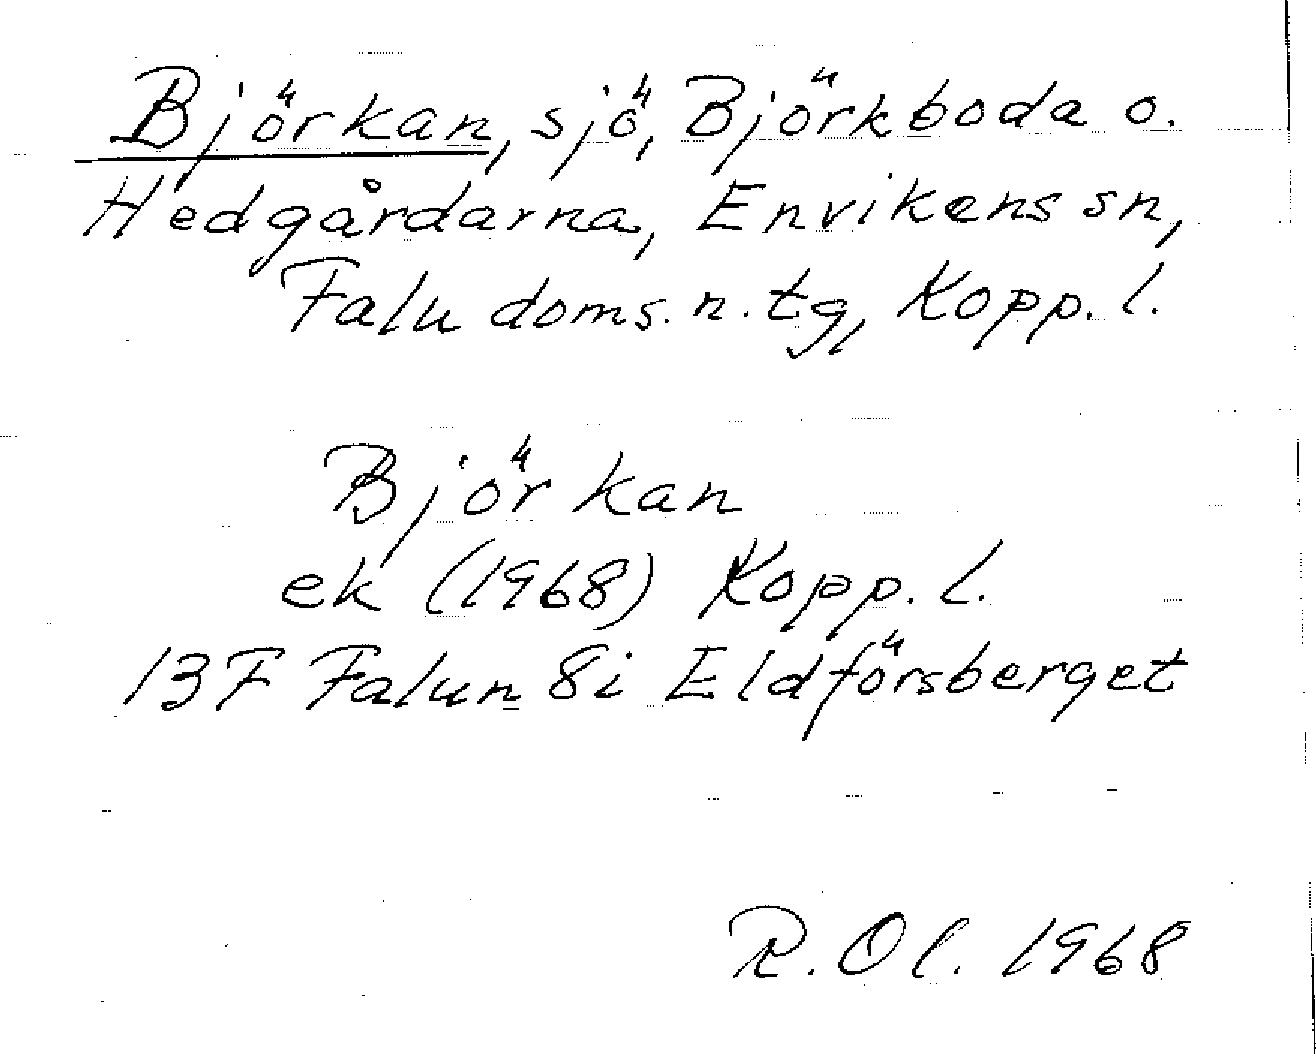 Björkan, sjö, Björkboda o.
Hedgårdarna, Envikens sn,
Falu doms. n. tg, Kopp. l.
Björkan
ek (1968) Kopp. l.
13F Falun 8i Eldförsberget
R. Ol. 1968